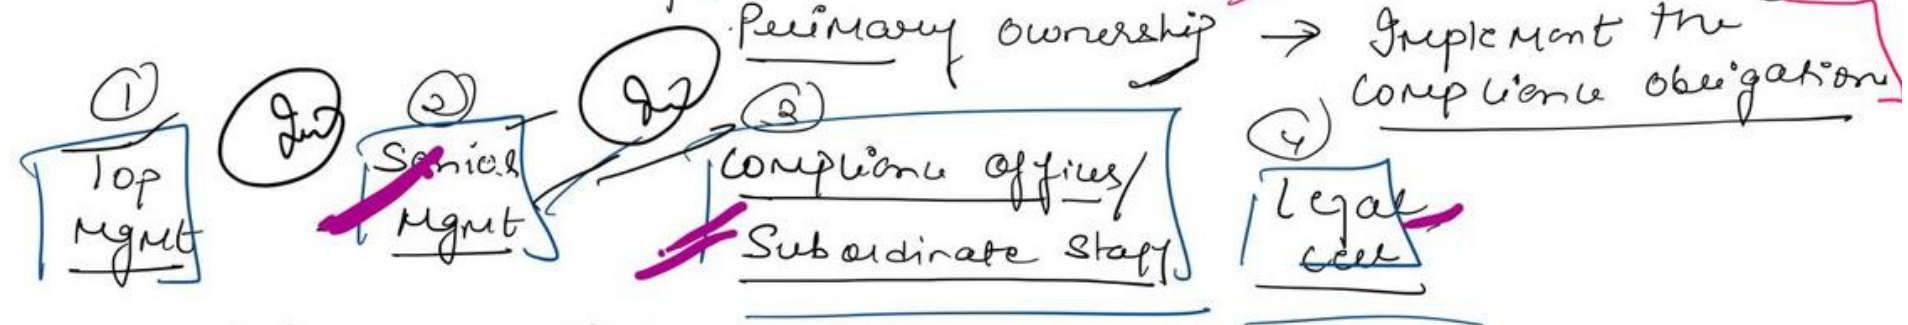 Primary ownership → Implement the
compliance obligation
1
2
3
4
Top
Mgmt
Int
Senior
Mgmt
Int
Compliance Officer/
Subordinate Staff
Legal
cell